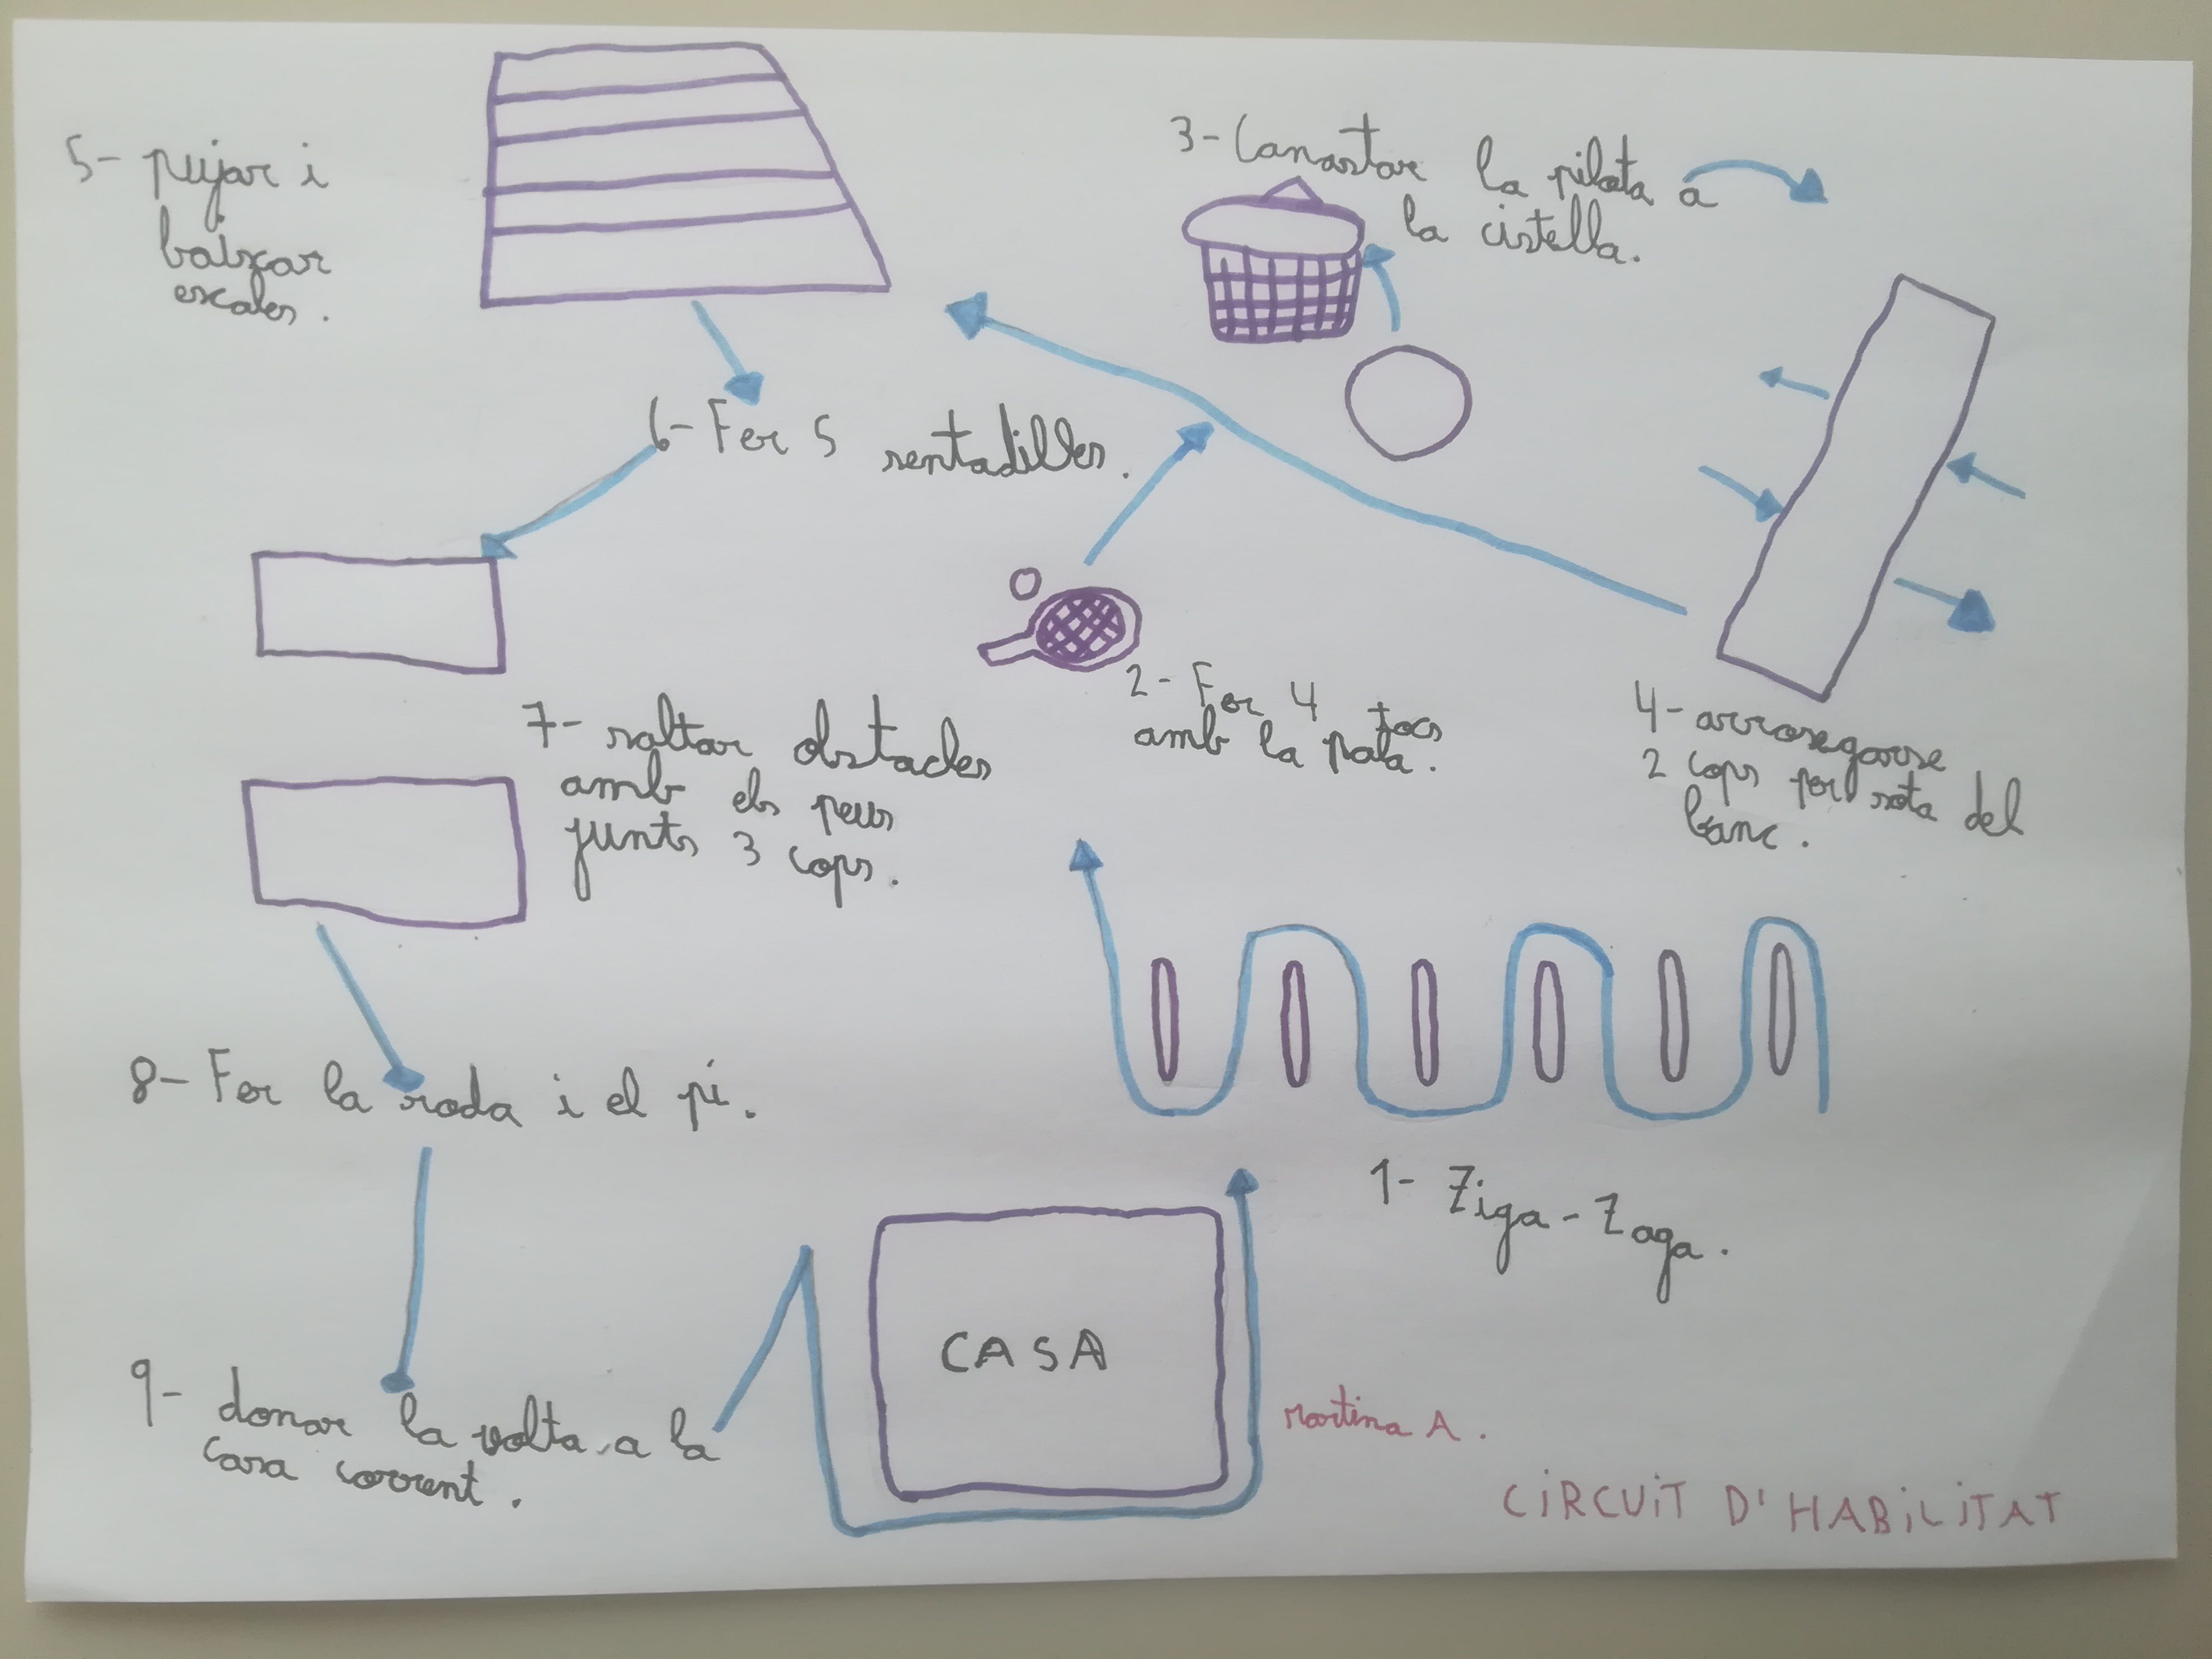 5- pujar i
baixar
escales.
3- Canastar la pilota a
la cistella.
6- Fer 5 sentadilles.
2- Fer 4 tocs
amb la pala.
4- arrosegarse
2 cops per sota del
banc.
7- saltar obstacles
amb els peus
junts 3 cops.
8- Fer la roda i el pi.
1- Ziga-Zaga.
CASA
9- donar la volta a la
casa corrent.
Martina A.
CiRCUiT D'HABiLiTAT